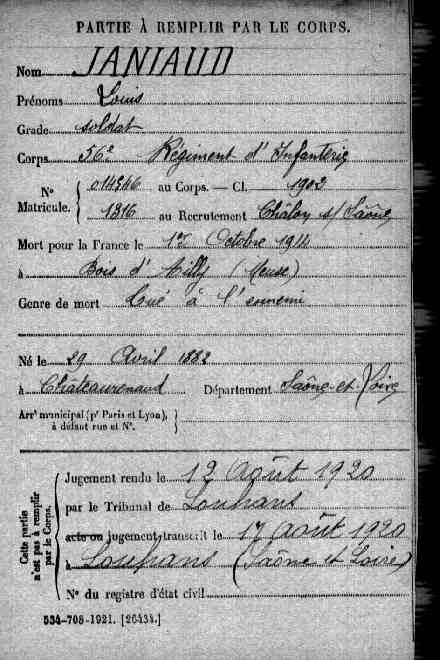 PARTIE À REMPLIR PAR LE CORPS.
Nom JANIAUD
Prénoms Louis
Grade soldat
Corps 56e Régiment d'Infanterie
N° Matricule. { 014546 au Corps. — Cl. 1902
1316 au Recrutement Châlon s/ Saône
Mort pour la France le 1er Octobre 1914
à Bois d'Ailly (Meuse)
Genre de mort Tué à l'ennemi
Né le 29 Avril 1882
à Châteaurenaud Département Saône-et-Loire
Arrt municipal (pr Paris et Lyon), }
à défaut rue et N°.
Cette partie n'est pas à remplir par le Corps.
Jugement rendu le 12 Août 1920
par le Tribunal de Louhans
acte ou jugement transcrit le 17 août 1920
à Louhans (Saône et Loire)
N° du registre d'état civil
534-708-1921. [26434.]